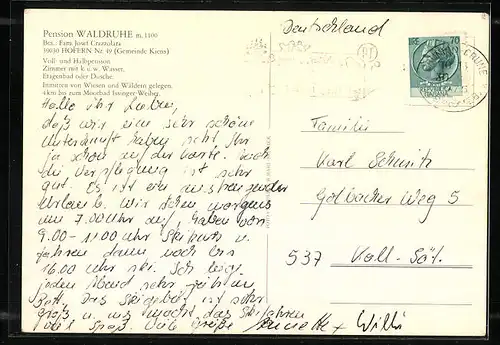 Pension WALDRUHE m. 1100
Bes.: Fam. Josef Crazzolara
39030 HOFERN Nr. 49 (Gemeinde Kiens)
Voll- und Halbpension
Zimmer mit k. u. w. Wasser,
Etagenbad oder Dusche.
Inmitten von Wiesen und Wäldern gelegen.
4 km bis zum Moorbad Issinger-Weiher.
Hallo ihr Lieben,
daß wir eine sehr schöne
Unterkunft haben seht Ihr
ja schon auf der Karte. Auch
die Verpflegung ist sehr
gut. Es ist ein anstrengender
Urlaub. Wir stehen morgens
um 7.00 Uhr auf, haben von
9.00 - 11.00 Uhr Skikurs u.
fahren dann noch bis
16.00 Uhr ski. Ich liege
jeden Abend sehr zeitig im
Bett. Das Skigebiet ist sehr
groß u. uns macht das Skifahren
viel Spaß. Viele Grüße Annette + Willi
Deutschland
70
Familie
Karl Schmitz
Golbacher Weg 5
537 Kall-Söt.